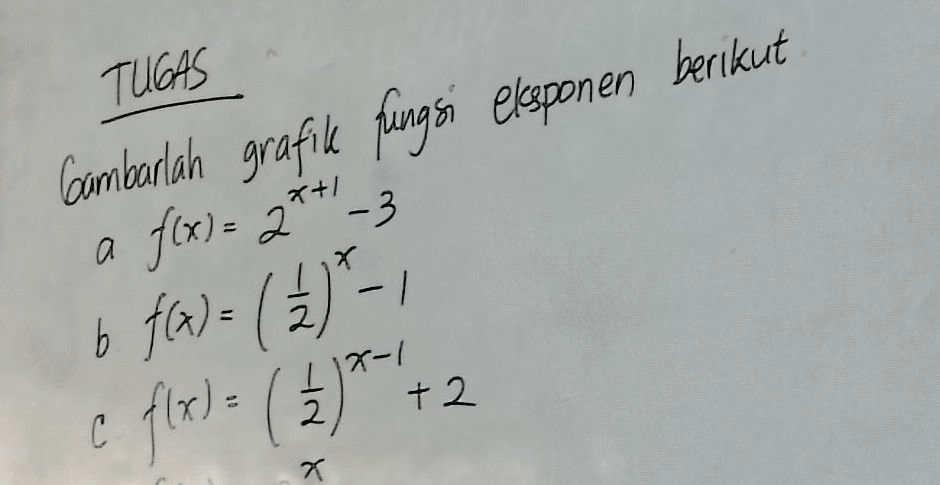 TUGAS
Gambarlah grafik fungsi eksponen berikut
a f(x) = 2^{x+1} - 3
b f(x) = (1/2)^x - 1
c f(x) = (1/2)^{x-1} + 2
x